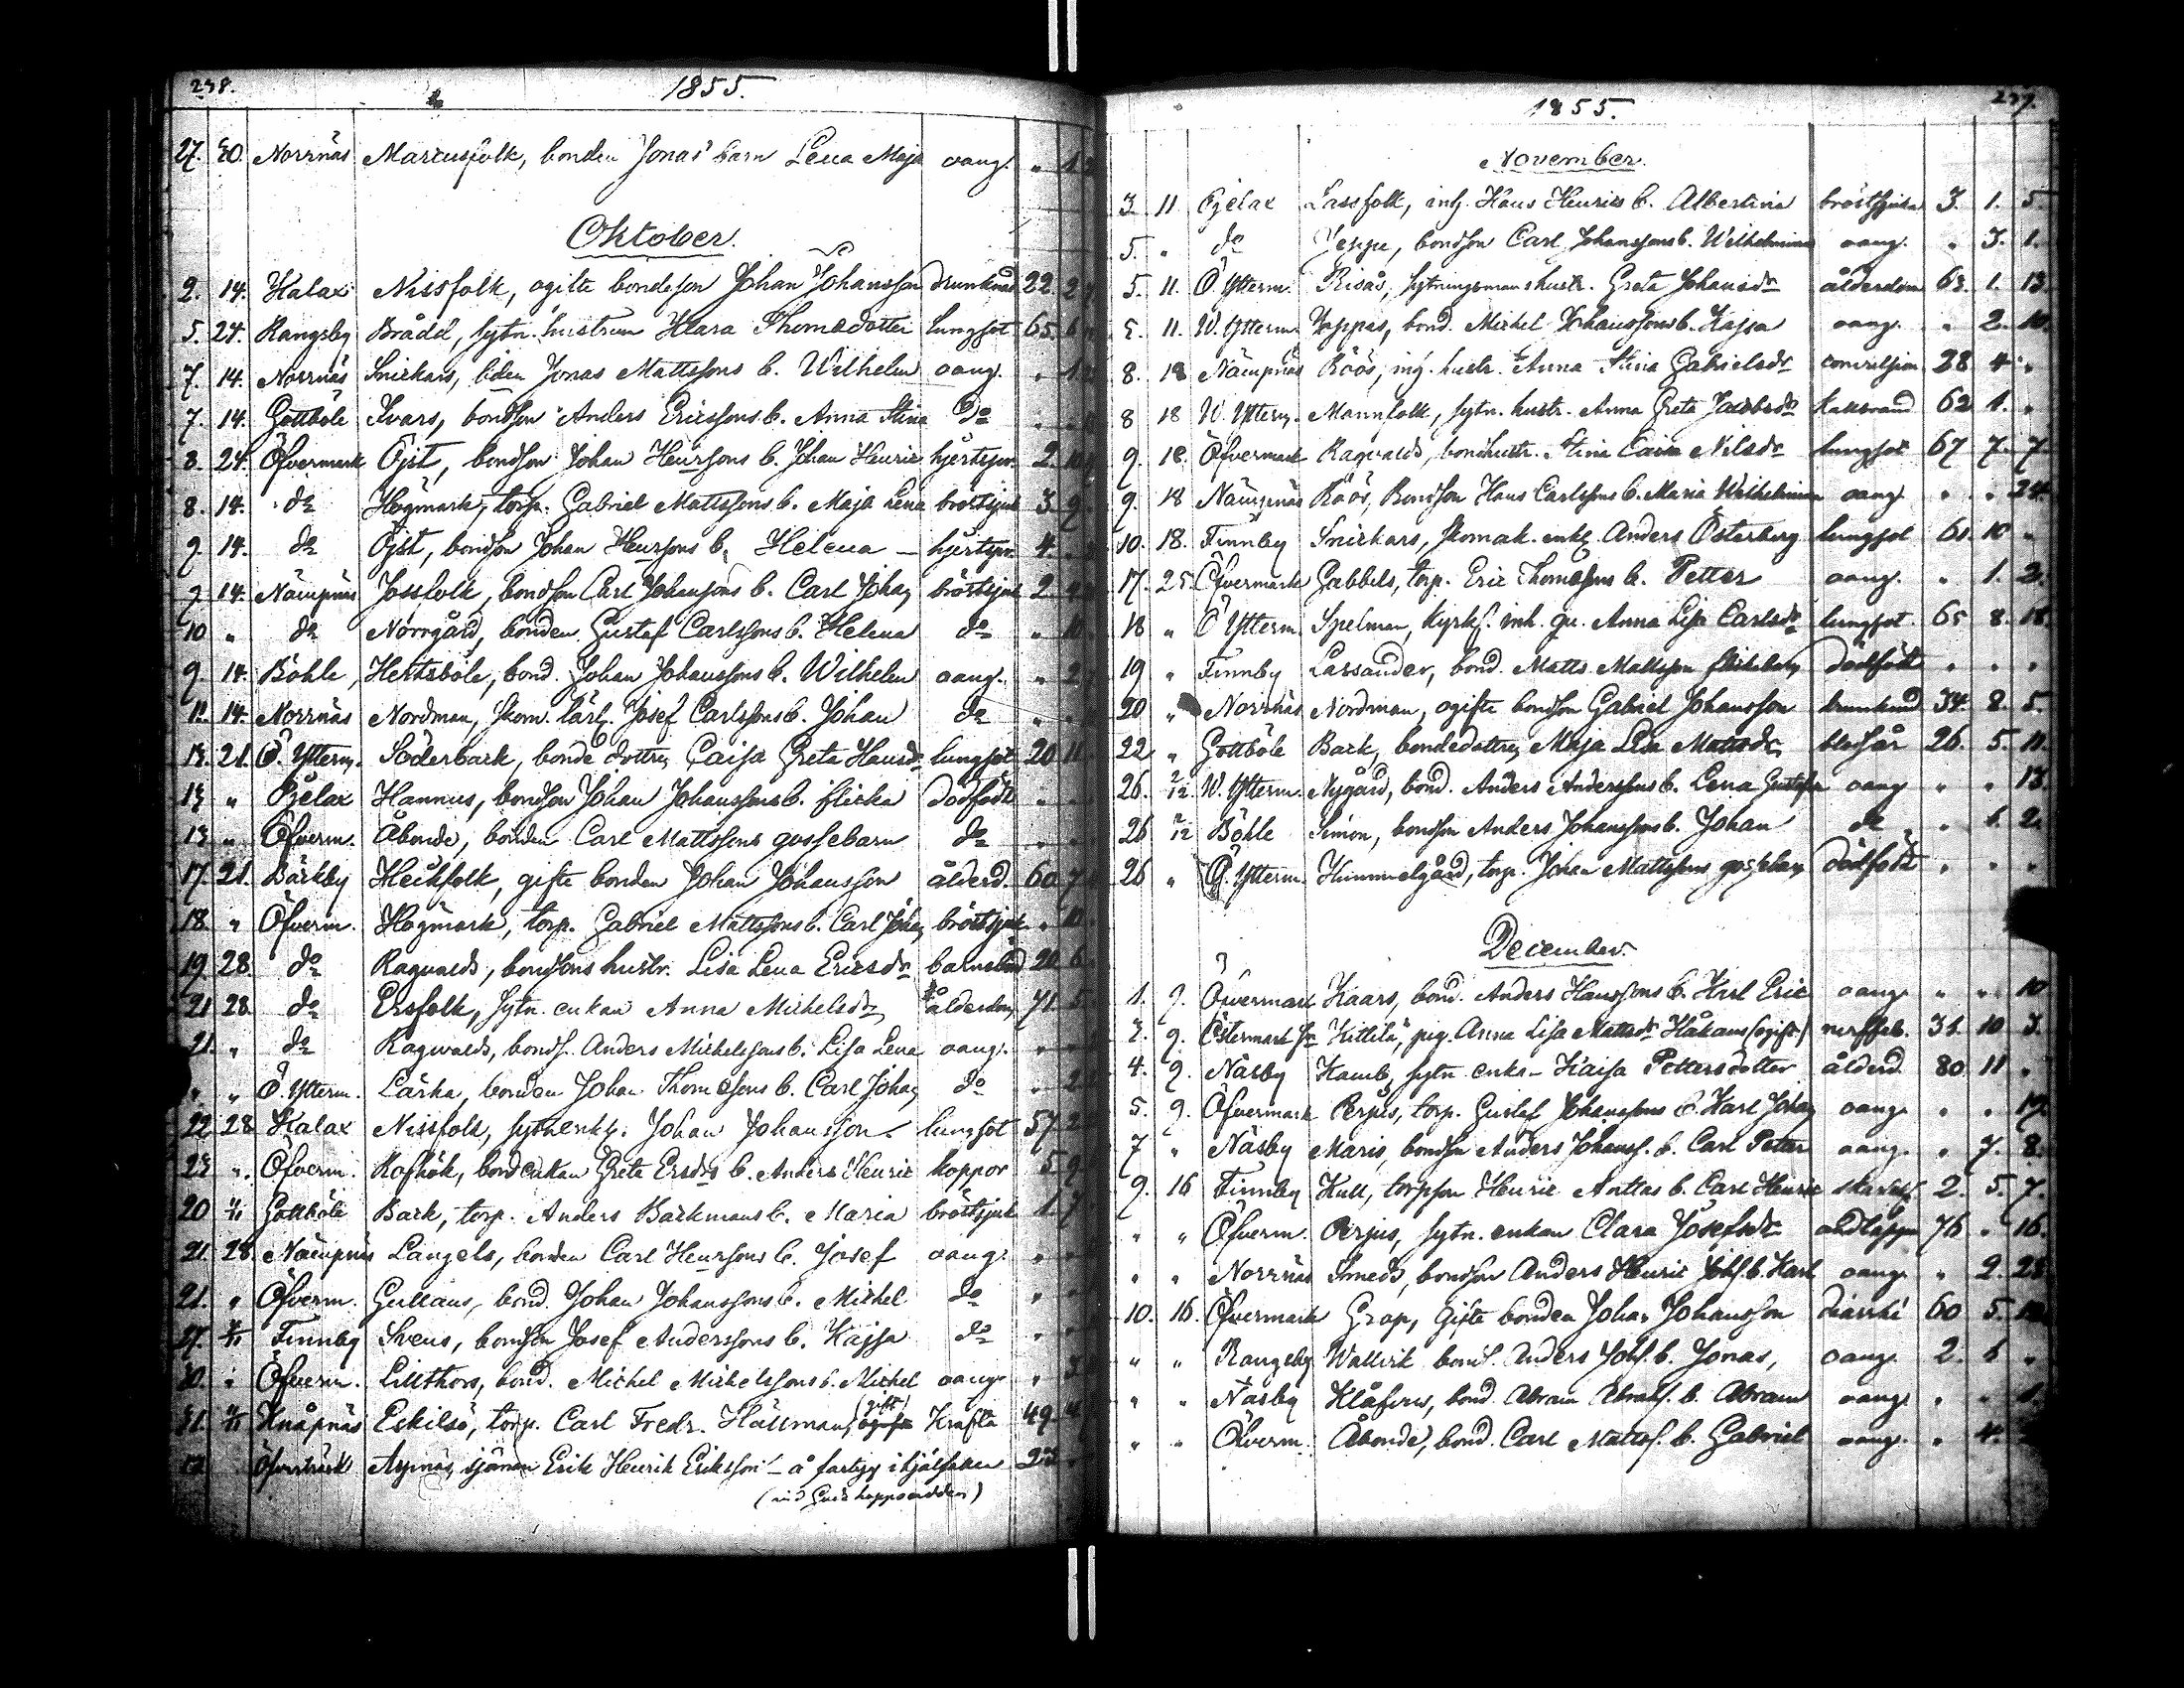 238.
1855.
27. 30. Norrnäs Marcusfolk, bonden Jonas' barn Lena Maja oang. "
Oktober.
2. 14. Kalax Nissfolk, ogifte bondeson Johan Johansson drunknad 22. 2
5. 24. Rangsby Brådd, sytn. hustrun Klara Thomsdotter lungsot 65. 6
7. 14. Norrnäs Snickars, bden Jonas Mattssons b. Wilhelm oang. "
7. 14. Gottböle Ivars, bondson Anders Ericssons b. Anna Stina do
8. 24. Öfvermark Öjst, bondson Johan Henrsons b. Johan Henric hjertspn. 2.
8. 14. do Högmark, torp. Gabriel Mattssons b. Maja Lena bröstsjuk 3. 9
9. 14. do Öjst, bondson Johan Henrsons b. Helena — hjertspn. 4.
9 14. Nämpnäs Jossfolk, bondson Carl Johansons b. Carl Johan bröstsjuk 2.
10 " do Norrgård, bonden Gustaf Carlssons b. Helena do "
9. 14. Böhle, Hertsböle, bond. Johan Johanssons b. Wilhelm oang. " 2
12. 14. Norrnäs Nordman, skom. lärl. Josef Carlssons b. Johan do "
13. 21. Ö. Ytterm. Söderback, bonde dottren Caisa Greta Hansdr lungsot 20 11
13 " Pjelax Hannus, bondson Johan Johanssons b. flicka dödfödt "
13 " Öfverm. Åbonde, bonden Carl Mattssons gossebarn do "
17. 21. Bäckby Heikfolk, gifte bonden Johan Johansson ålderd. 60 7
18. " Öfverm. Högmark, torp. Gabriel Mattssons b. Carl Johan bröstsjuk " 10
19 28. do Ragvalds, bondsons hustr. Lisa Lena Ericsdr barnsbörd 20 6
21 28 do Ersfolk, sytn. enkan Anna Michelsdr ålderdom 71. 5
21. " do Ragwalds, bonds. Anders Michelssons b. Lisa Lena oang. "
" " Ö. Ytterm. Lärka, bonden Johan Thomesons b. Carl Johan do " 2
22 28 Kalax Nissfolk, sytn. enkl. Johan Johansson lungsot 57 2
23 " Öfverm. Rofhök, bondenkan Greta Ersdrs b. Anders Henric koppor 5 9
20 1/11 Gottböle Back, torp. Anders Backmans b. Maria bröstsjuk 1. 7
21. 28 Nämpnäs Långels, bonden Carl Henrsons b. Josef oang. "
21. " Öfverm. Gullans, bond. Johan Johanssons b. Michel do "
27. 4/11 Finnby Svens, bondson Josef Anderssons b. Kajsa do "
30. " Öfverm. Lillthors, bond. Michel Michelssons b. Michel oang. " 3
31. 4/11 Knåpnäs Eskilsö, torp. Carl Fredr. Hällman, ogifte (gift) Kräfta 49.
Öfverträsk Aspnäs, sjöman Erik Henrik Eriksson — å fartyg ihjälfallen 23
(vid Goda hoppsudden)
239.
1855.
November.
3. 11. Pjelax Lassfolk, inh. Hans Henrics b. Albertina bröstsjuka 3. 1. 5.
5. " do Jeppe, bondson Carl Johanssons b. Wilhelmina oang. " 3. 1.
5. 11. Ö. Ytterm. Risås, sytningsmans hustr. Greta Johansdr ålderdom 63. 1. 13.
5. 11. W. Ytterm. Jeppas, bond. Michel Johanssons b. Kajsa oang. " 2. 10.
8. 18 Nämpnäs Röös, inh. hustr. Anna Stina Gabrielsdr convulsion 28 4 "
8 18 W. Ytterm. Mannfolk, sytn. hustr. Anna Greta Jacobsdr kallbrand 62 1. "
9. 18. Öfvermark Ragvalds, bondhustr. Stina Caisa Nilsdr lungsot 67 7 7
9. 18 Nämpnäs Röös, Bondson Hans Carlssons b. Maria Wilhelmina oang. " " 24.
10. 18. Finnby Snickars, skomak. enkl. Anders Österberg lungsot 61. 10 "
17. 25 Öfvermark Gabbels, torp. Eric Thomesons b. Petter oang. " 1. 2.
18 " Ö Ytterm. Spelman, kyrks. inh. qv. Anna Lisa Carlsdr lungsot 65 8. 18.
19 " Finnby Lassander, bond. Matts Mattsson flickebarn dödfödt " " "
20 " Norrnäs Nordman, ogifte bondson Gabriel Johansson drunknad 34. 8. 5.
22 " Gottböle Back, bondedottren Maja Lisa Mattsdr 26. 5. 11.
26. 2/12 W. Ytterm. Nygård, bond. Anders Anderssons b. Lena Gustafva oang " " 13.
26 2/12 Böhle Simon, bondson Anders Johanssons b. Johan do " 1. 2.
26 " Ö. Ytterm. Himmelgård, torp. Johan Mattssons gossebarn dödfödt " " "
December.
1. 9. Öfvermark Kaars, bond. Anders Hanssons b. Karl Eric oang. " " 10
3. 9. Östermark fr. Kittilä, pig. Anna Lisa Mattsdr Håkans (ogift) nerffeb. 31. 10 3.
4. 9. Näsby Kamb, sytn. enka - Kaisa Pettersdotter ålderd. 80 11 "
5. 9. Öfvermark Perjus, torp. Gustaf Johanssons b. Karl Johan oang. " " 19.
7 " Näsby Maris, bondson Anders Johanss. b. Carl Petter oang. " 7. 8.
9. 16 Finnby Kull, torpson Henric Anttas b. Carl Henric 2. 5. 7.
" " Öfverm. Perjus, sytn. enkan Clara Josefsdr 76 " 16.
" " Norrnäs Smeds, bondson Anders Henric Johs. b. Karl oang. " 2. 28
10. 16. Öfvermark Grop, Gifte bonden Johan Johansson diarrhé 60 5.
" " Rangsby Wallvik bonds. Anders Johs. b. Jonas, oang. 2. 1 "
" " Näsby Klåfvus, bond. Abram Abrahs. b. Abram oang. " " 1.
" " Öfverm. Åbonde, bond. Carl Mattss. b. Gabriel oang. " 4.